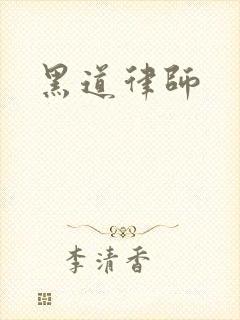 黑道律師
李清香